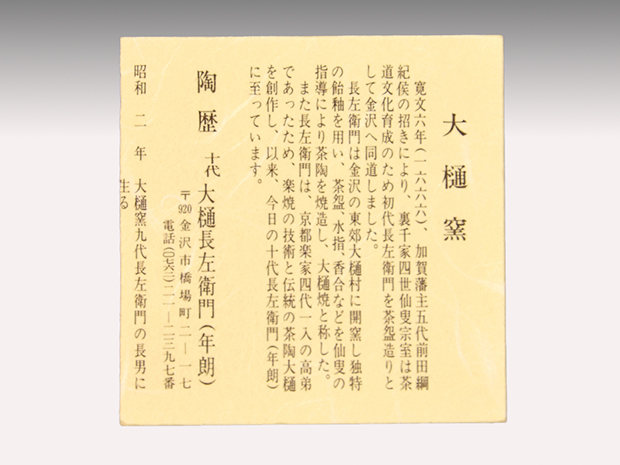 大樋窯
寛文六年(一六六六)、加賀藩主五代前田綱
紀侯の招きにより、裏千家四世仙叟宗室は茶
道文化育成のため初代長左衛門を茶盌造りと
して金沢へ同道しました。
長左衛門は金沢の東郊大樋村に開窯し独特
の飴釉を用い、茶盌、水指、香合などを仙叟の
指導により茶陶を焼造し、大樋焼と称した。
また長左衛門は、京都楽家四代一入の高弟
であったため、楽焼の技術と伝統の茶陶大樋
を創作し、以来、今日の十代長左衛門(年朗)
に至っています。
陶歴 十代 大樋長左衛門(年朗)
〒920 金沢市橋場町二―一七
電話(〇七六二)二一―二三九七番
昭和 二 年 大樋窯九代長左衛門の長男に
生る